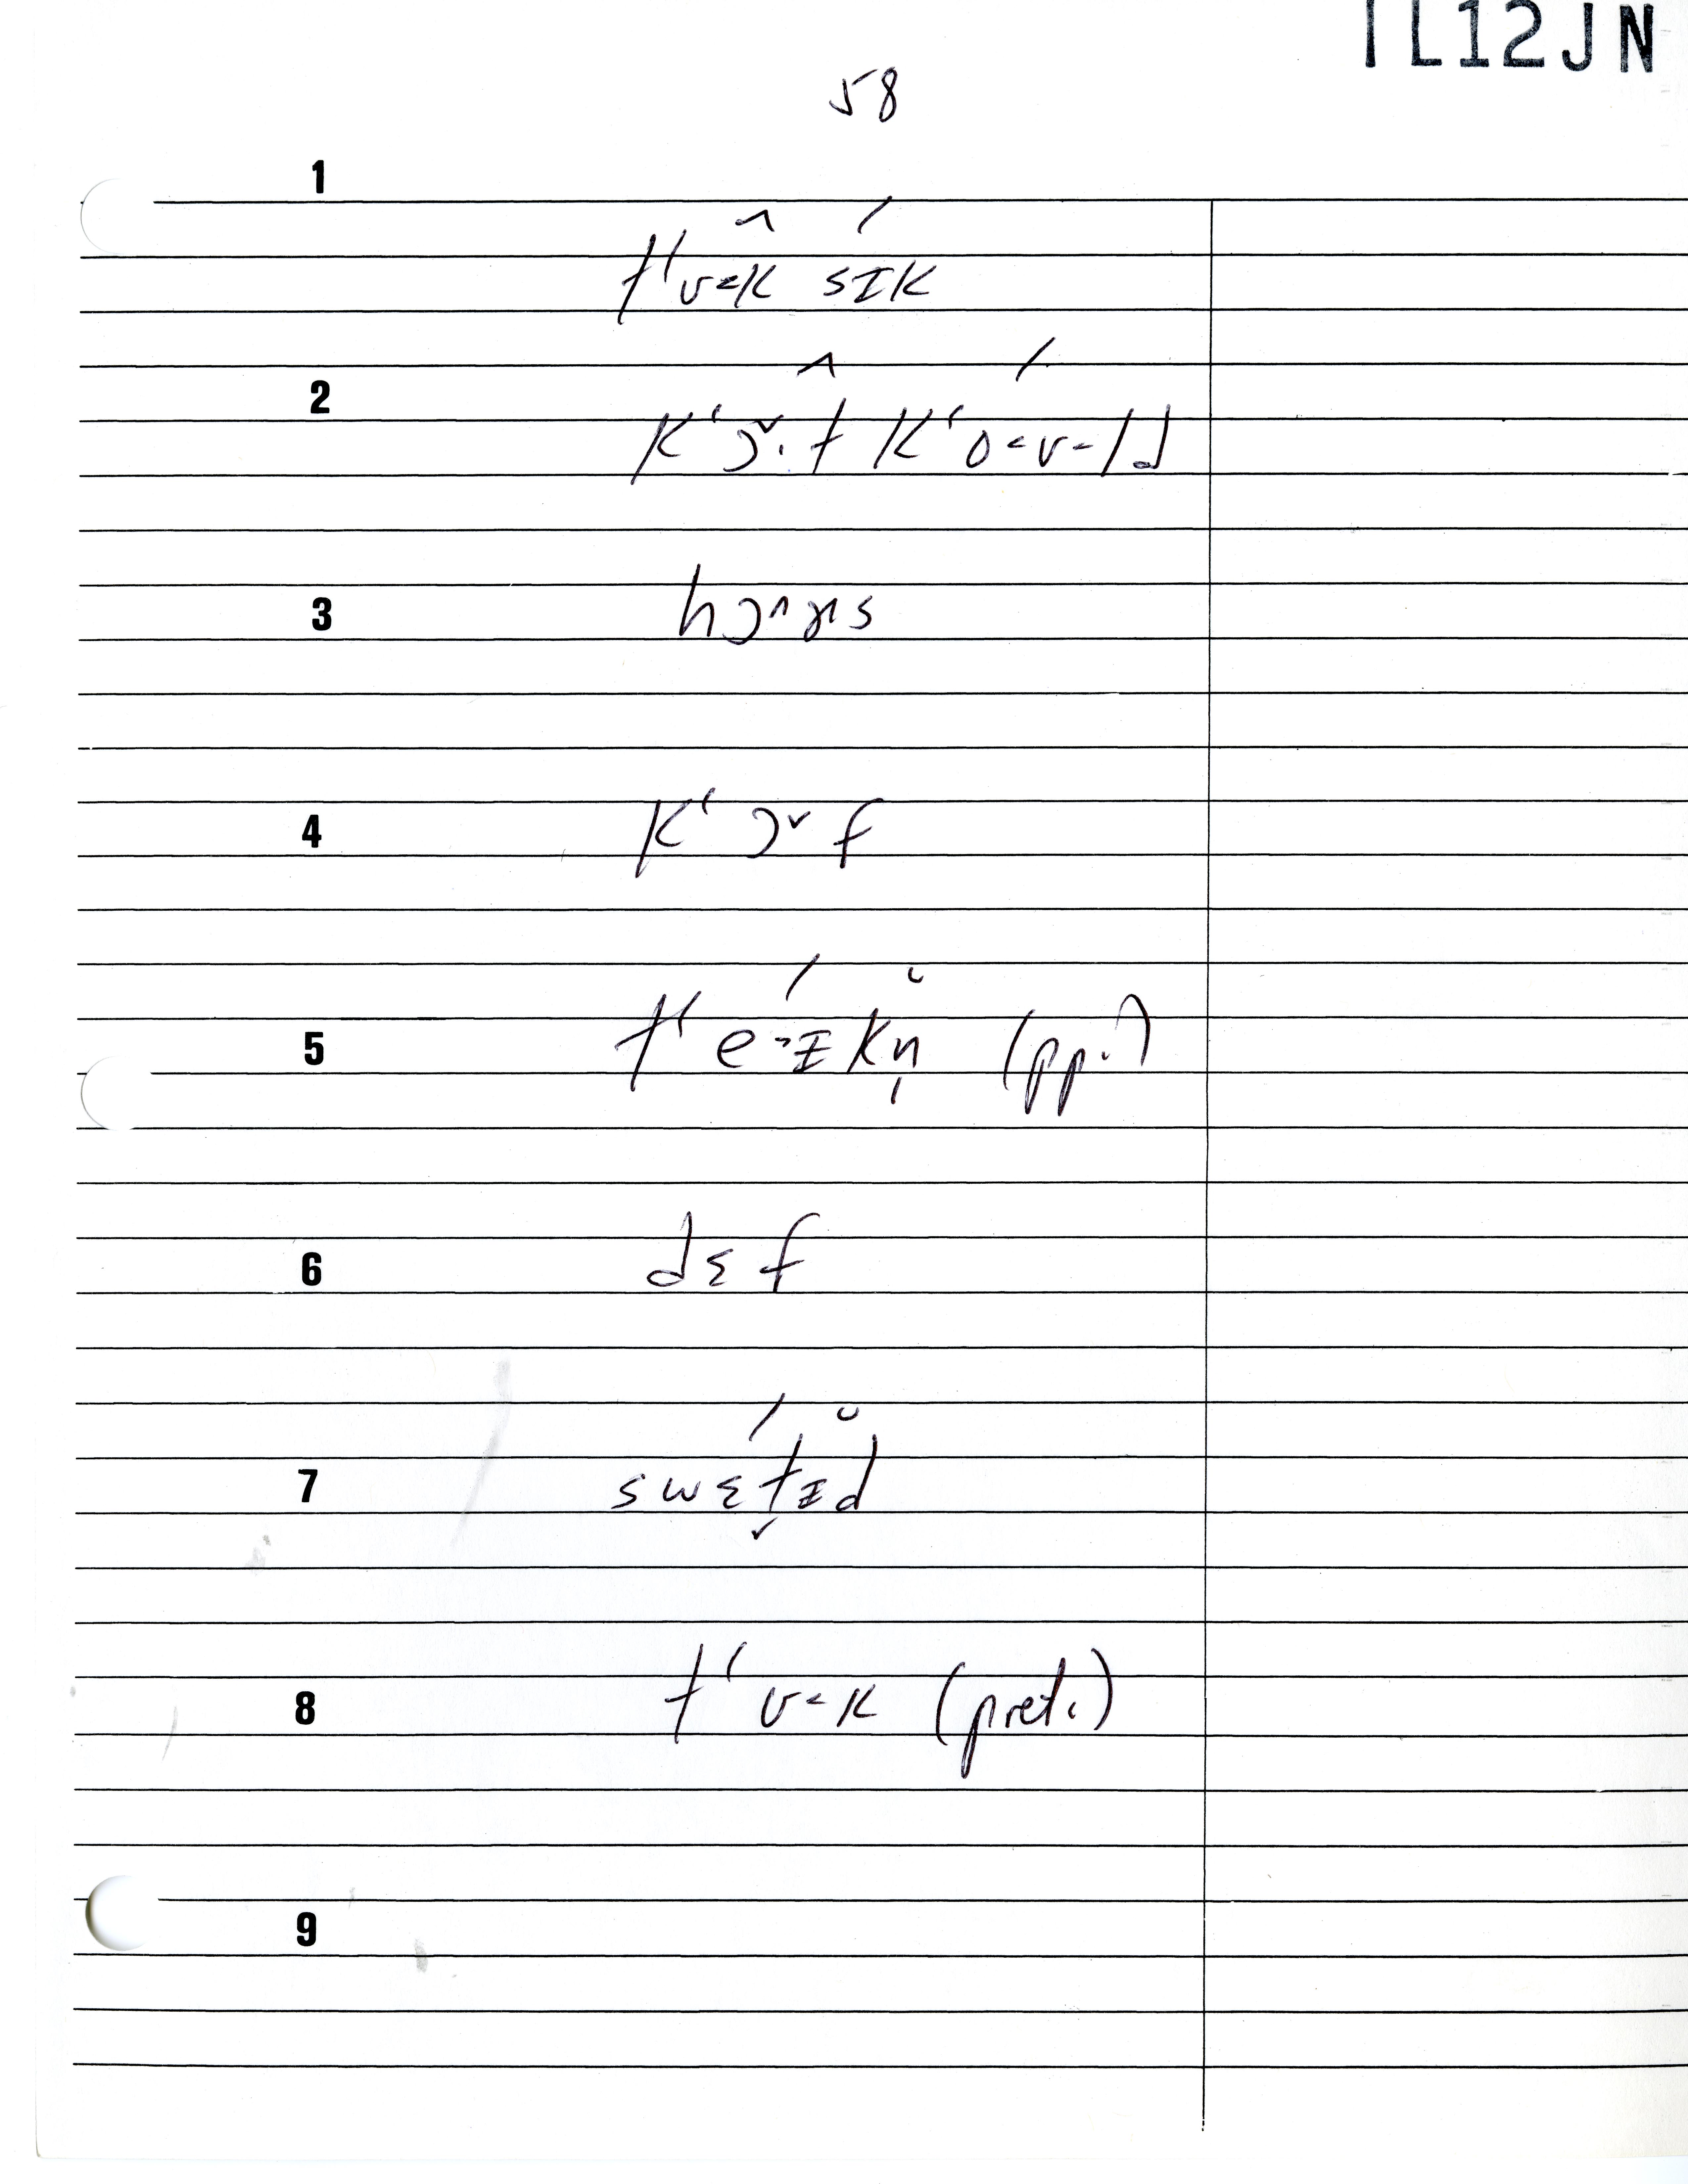 IL12JN
58
1
t‘ʊ˂k sɪk
2
k‘ɔ˅·t k‘o˂ʊ˗ld
3
hɔ˄ɤs
4
k‘ɔ˅f
5
t‘e˃ɪkn̩ (pp.)
6
dɛf
7
swɛt̬ɪd
8
t‘ʊ˂k (pret.)
9